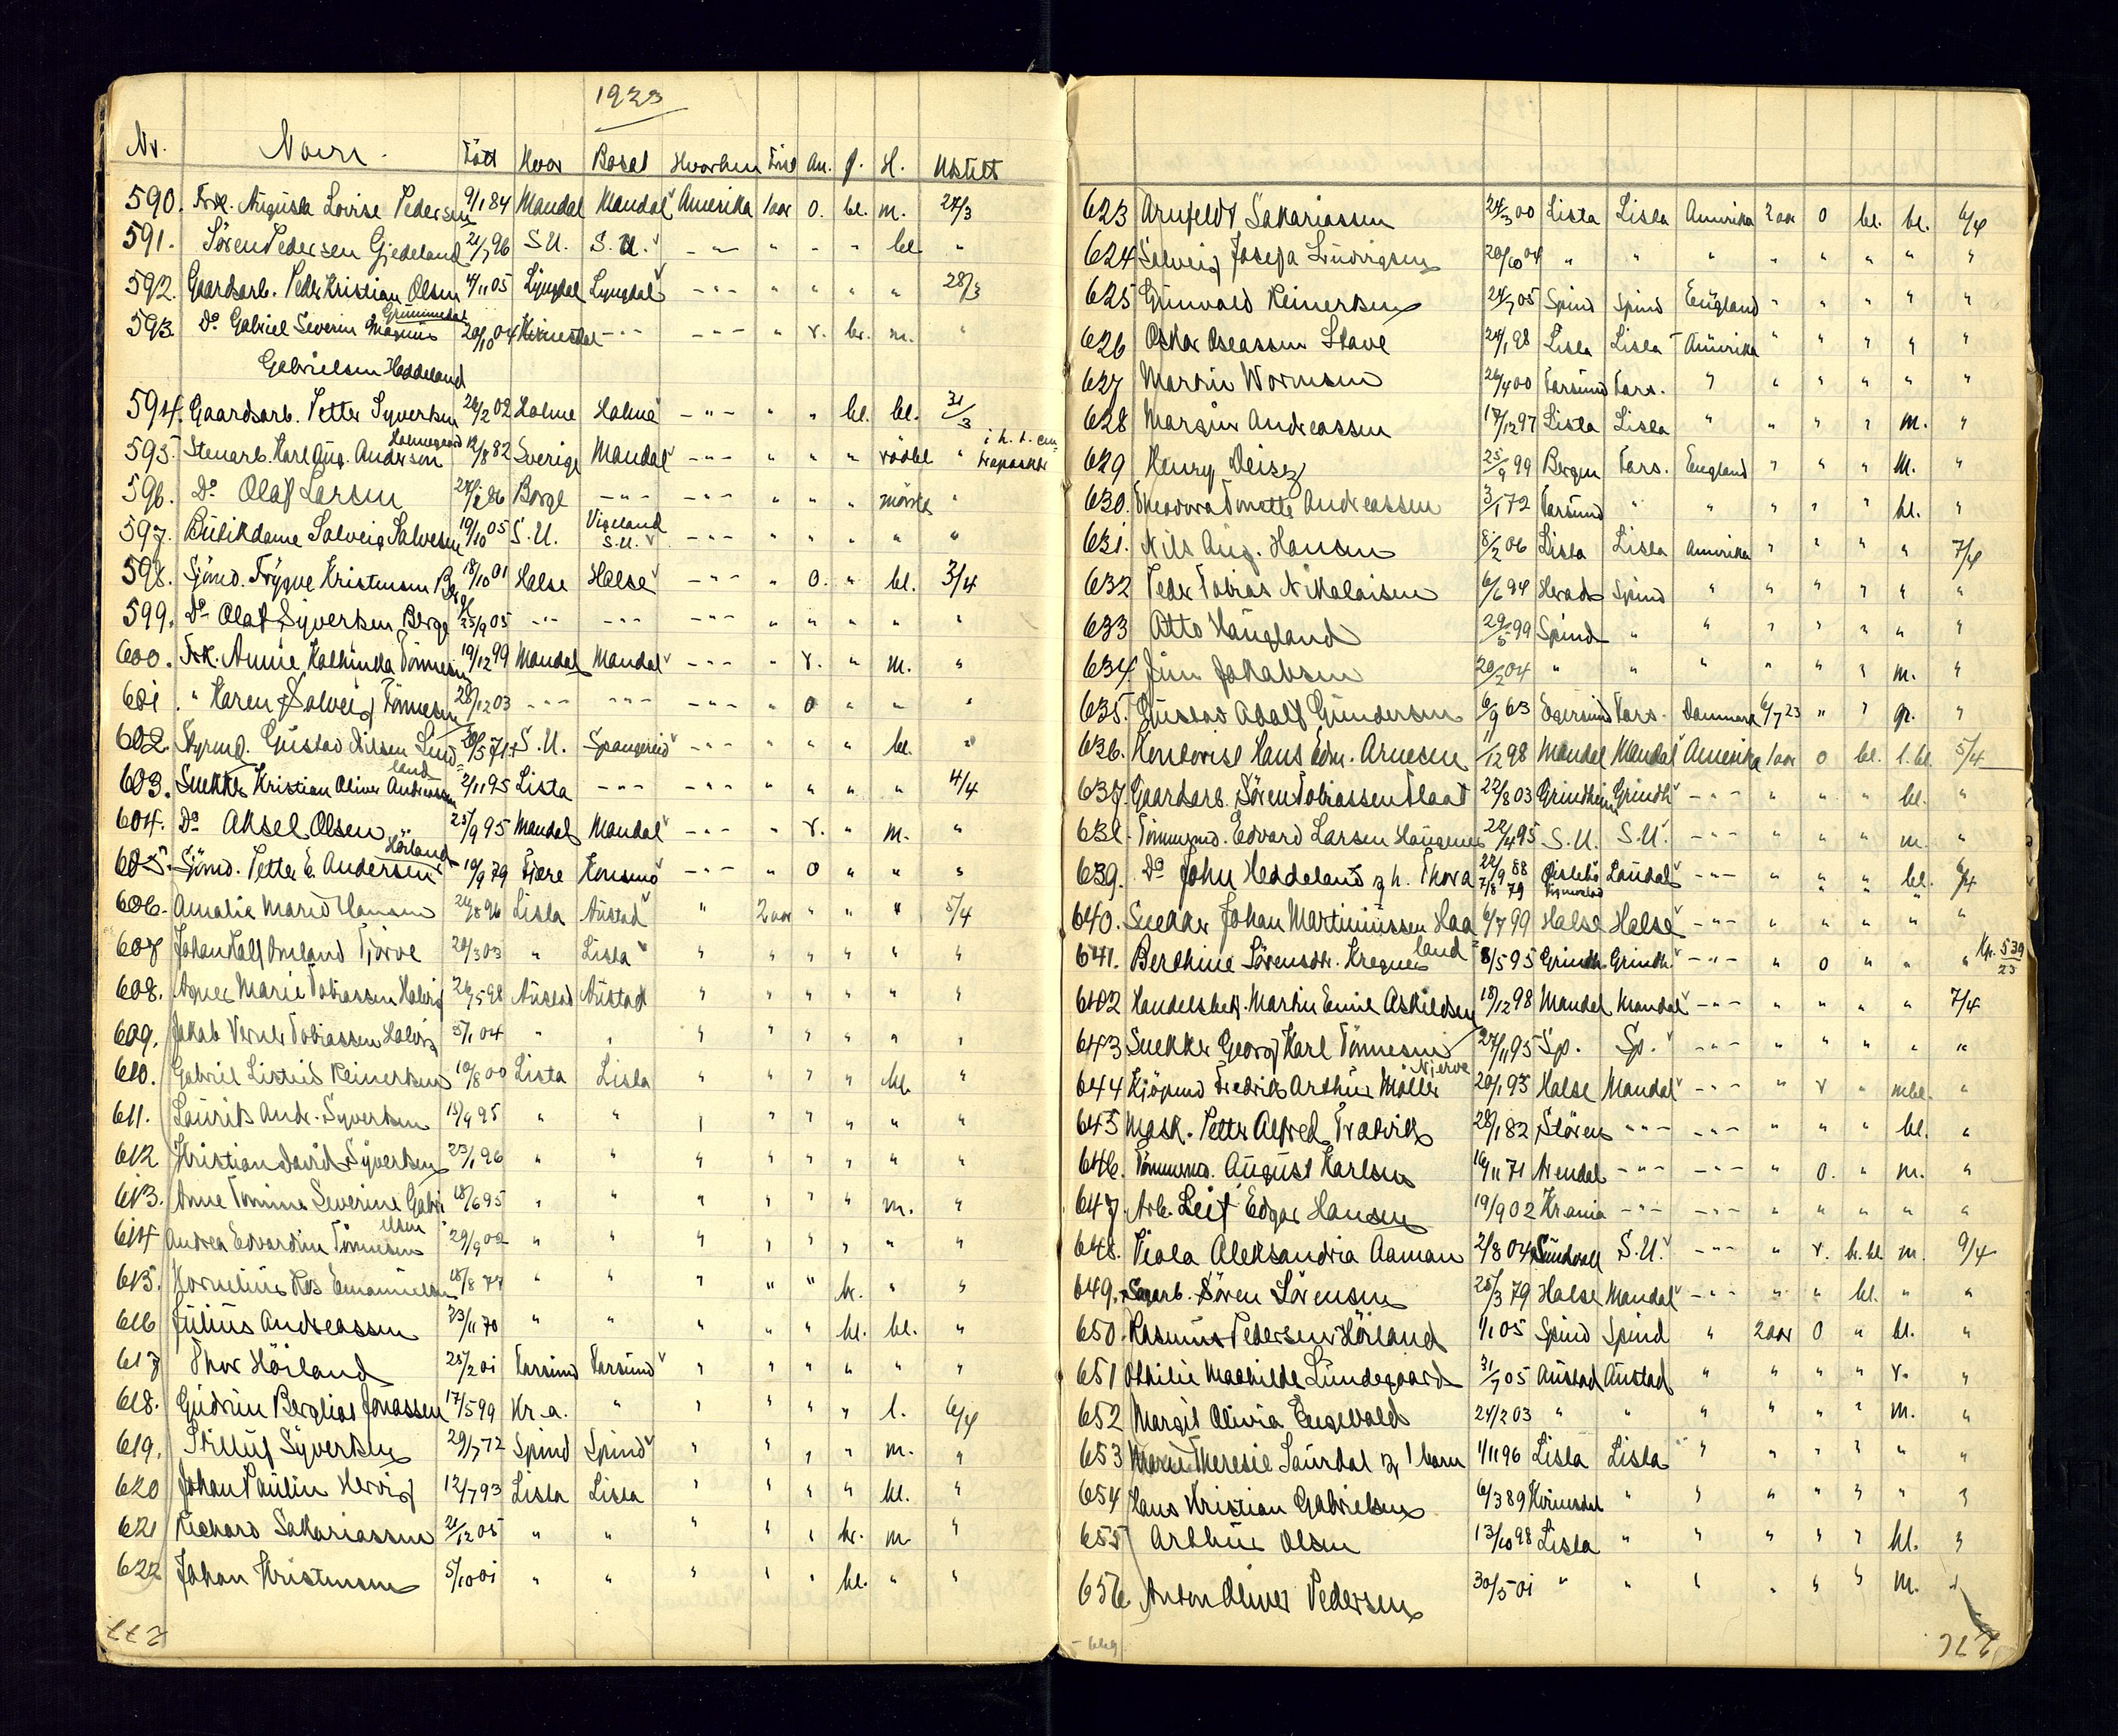 1923
Nr. Navn. Født Hvor Bosat Hvorhen Tid An. f. H. Utstilt
590. Frk. Augusta Lovise Pedersen 9/1 84 Mandal Mandal Amerika 1 aar O. bl. m. 27/3
591. Sören Pedersen Gjedeland 21/7 96 S.U. S.U. -"- " " " bl. "
592. Gaardsarb. Peder Kristian Olsen 4/11 05 Lyngdal Lyngdal -"- " " " " 28/3
Grummedal
593. Do Gabriel Severin Magnus 20/10 04 Kvinesdal -"- -"- " r. br. m. "
Gabrielsen Heddeland
594. Gaardsarb. Petter Syvertsen 26/2 02 Holme Holme -"- " " bl. bl. 31/3
Holmegaard i h. t.
595. Stenarb. Karl Aug. Anderson 12/8 82 Sverige Mandal -"- " " " rödbl "
596. Do Olaf Larsen 86 Borge -"- -"- " " " mörk "
Vigeland
597. Butikdame Solveig Salvesen 19/10 05 S.U. S.U. -"- " " " " "
598. Sjömd. Trygve Kristensen Berge 18/10 01 Halse Halse -"- " O. " bl. 3/4
599. Do Olaf Syvertsen Berge 25/9 05 -"- -"- -"- " " " " "
600. Frk. Annie Kathinka Tönnesen 19/12 99 Mandal Mandal -"- " r. " m. "
601. " Karen Solveig Tönnesen 28/12 03 -"- -"- -"- " O " " "
602. Styrmd. Gustav Nilsen Lind= 20/5 71 S.U. Spangereid -"- " " " bl. "
land
603. Snekker Kristian Oliver Andreassen 2/11 95 Lista -"- -"- " " " " 4/4
604. Do Aksel Olsen 25/9 95 Mandal Mandal -"- " r. " m. "
Höiland
605. Sjömd. Petter E. Andersen 10/9 79 Fjære Konsmo -"- " O " " "
606. Amalie Marie Hansen 24/8 96 Lista Austad " 2 aar " " " 5/4
607 Johan Ralf Omland Tjörve 20/3 03 " Lista " " " " " "
608. Agnes Marie Tobiassen 26/5 98 Austad Austad " " " " " "
609. Jakob Verner Tobiassen 5/1 04 " " " " " " " "
610. Gabriel Listeid Reinertsen 10/8 00 Lista Lista " " " " bl. "
611. Laurits Andr. Syvertsen 15/9 95 " " " " " " " "
612 Kristian David Syvertsen 23/1 96 " " " " " " " "
613. Anne Tomine Severine Gabri 18/6 95 " " " " " " m. "
elsen
614 Andrea Edvardine Tönnesen 29/9 02 " " " " " " " "
615. Kornelius Emanuelsen 18/8 77 " " " " " br. " "
616 Julius Andreassen 23/11 70 " " " " " bl. bl. "
617 Thor Höiland 25/2 01 Farsund Farsund " " " " " "
618. Gudrun Bergliot Jonassen 17/5 99 Kr.a. " " " " " l. 6/4
619. Syvertsen 29/7 72 Spind Spind " " " " m. "
620 Johan Paulin Hervig 12/7 93 Lista Lista " " " " bl. "
621 Rickard Sakariassen 21/12 05 " " " " " br. m. "
622 Johan Kristensen 5/10 01 " " " " " bl. " "
277
623 Arnfeldt Sakariassen 24/3 00 Lista Lista Amerika 2 aar O bl. bl. 6/4
624 Solveig Josefa Ludvigsen 20/10 04 " " " " " " " "
625 Gunvald Reinertsen 24/7 05 Spind Spind England " " " " "
626 Oskar Oseassen Stave 24/1 98 Lista Lista Amerika " " " " "
627 Martin Wormsen 26/4 00 Farsund Fars. " " " " " "
628 Margin Andreassen 17/12 97 Lista Lista " " " " m. "
629 Henry Deisz 25/9 99 Bergen Fars. England " " " m. "
630. Theodora Tonette Andreassen 3/1 72 Farsund " " " " " bl. "
631. Nils Aug. Hansen 8/2 06 Lista Lista Amerika " " " " 7/4
632 Peder Tobias Nikolaisen 6/6 94 Herad Spind " " " " " "
633 Atto Haugland 29/5 99 Spind " " " " " " "
634. Jim Jakobsen 20/2 04 " " " " " " m. "
635. Gustav Adolf Gundersen 6/9 63 Egersund Fars. Danmark 6/7 23 " " gr. "
636. Kontorist Hans Edm. Arnesen 11/12 98 Mandal Mandal Amerika 1 aar O bl. l.bl. 5/4
637. Gaardsarb. Sören Tobiassen Flaat 22/8 03 Grindheim Grindh. -"- " " " bl. "
638. Tömmermd. Edvard Larsen Haugenes 22/4 95 S.U. S.U. -"- " " " m "
639. Do John Heddeland og h. Thora 22/9 88 7/8 79 Öislebö Laudal -"- " " " bl. 6/4
640. Snekker Johan Martiniussen Haa 6/7 99 Halse Halse -"- " " " " "
land
641. Berthine Sörensdtr. 8/5 95 Grindh. Grindh. -"- " O " " " Kr. 539/23
6402 Handelsbetj. Martin Emil Askildsen 18/12 98 Mandal Mandal -"- " " " " 7/4
643 Snekker Georg Karl Tönnesen 27/11 95 Sp. Sp. -"- " " " " "
Njerve
644 Kjöpmd Fredrik Arthur Möller 20/1 93 Halse Mandal -"- " r " mbl. "
645 Mask. Petter Alfred Fredrik 28/1 82 Stören -"- -"- " " " bl. "
646. Tömmermd. August Karlsen 16/11 71 Arendal -"- -"- " O. " m. "
647. Arb. Leif Edgar Hansen 19/9 02 Kr.ania -"- -"- " " " " "
648. Viola Aleksandria Aaman 2/8 04 Sundsvall S.U. -"- " r. br.bl m. 9/4
649. Sagarb. Sören Sörensen 25/3 79 Halse Mandal -"- " " bl. " "
650. Rasmus Pedersen Höiland 1/1 05 Spind Spind " 2 aar O " bl. "
651 Othilie Mathilde Lundegaard 31/7 05 Austad Austad " " " " r. "
652 Margit Olivia Engevald 24/2 03 " " " " " " m. "
653 Marie Theresie Saurdal og 1 barn 1/11 96 Lista Lista " " " " " "
654 Hans Kristian Gabrielsen 6/3 89 Kvinesdal " " " " " " "
655 Arthur Olsen 13/10 98 Lista " " " " " bl. "
656 Anton Oliver Pedersen 30/5 01 " " " " " " m. "
- 669